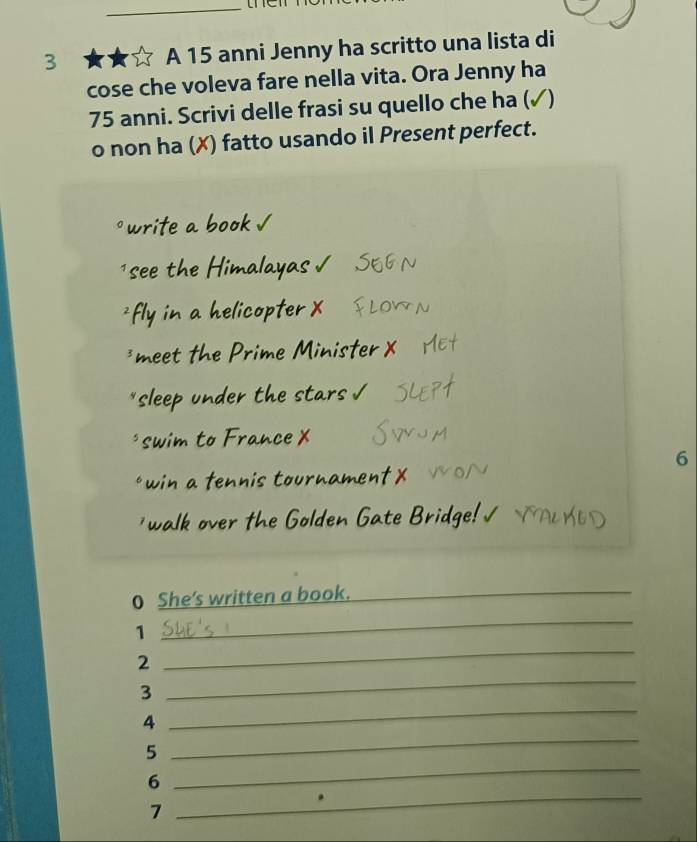 3 ★★☆ A 15 anni Jenny ha scritto una lista di
cose che voleva fare nella vita. Ora Jenny ha
75 anni. Scrivi delle frasi su quello che ha (✓)
o non ha (✗) fatto usando il Present perfect.
0 write a book ✓
1 see the Himalayas ✓ SEEN
2 fly in a helicopter ✗ FLOWN
3 meet the Prime Minister ✗ MET
4 sleep under the stars ✓ SLEPT
5 swim to France ✗ SWUM
6 win a tennis tournament ✗ WON
7 walk over the Golden Gate Bridge! ✓ WALKED
6
0 She's written a book.
1 SHE'S
2
3
4
5
6
7